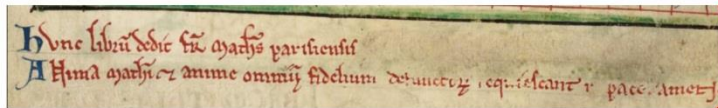 Hunc librū dedic̄ fr̄ Math̄s parisiensis
Anima mathi ⁊ anime omniū fidelium defunctorꝝ requiescant ī pace. amen